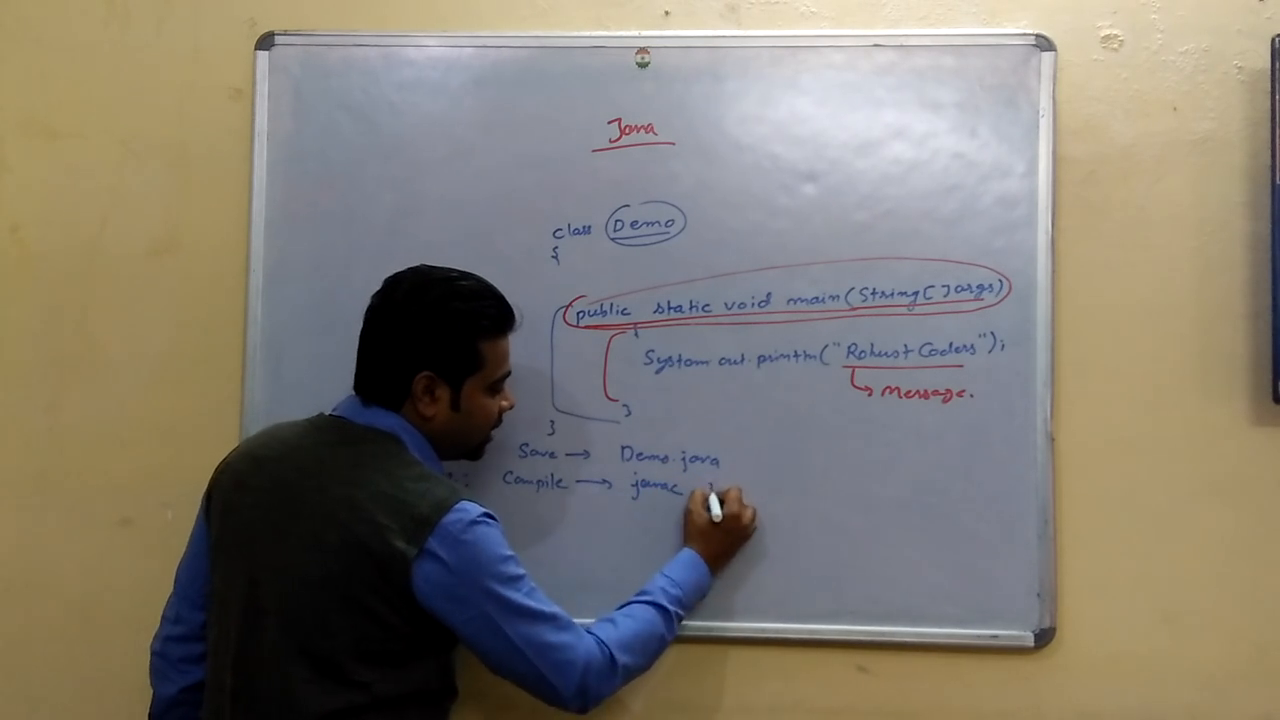 Java
class Demo
{
public static void main(String[]args)
{
System.out.println("Robust Coders");
Message.
}
}
Save → Demo.java
Compile → javac